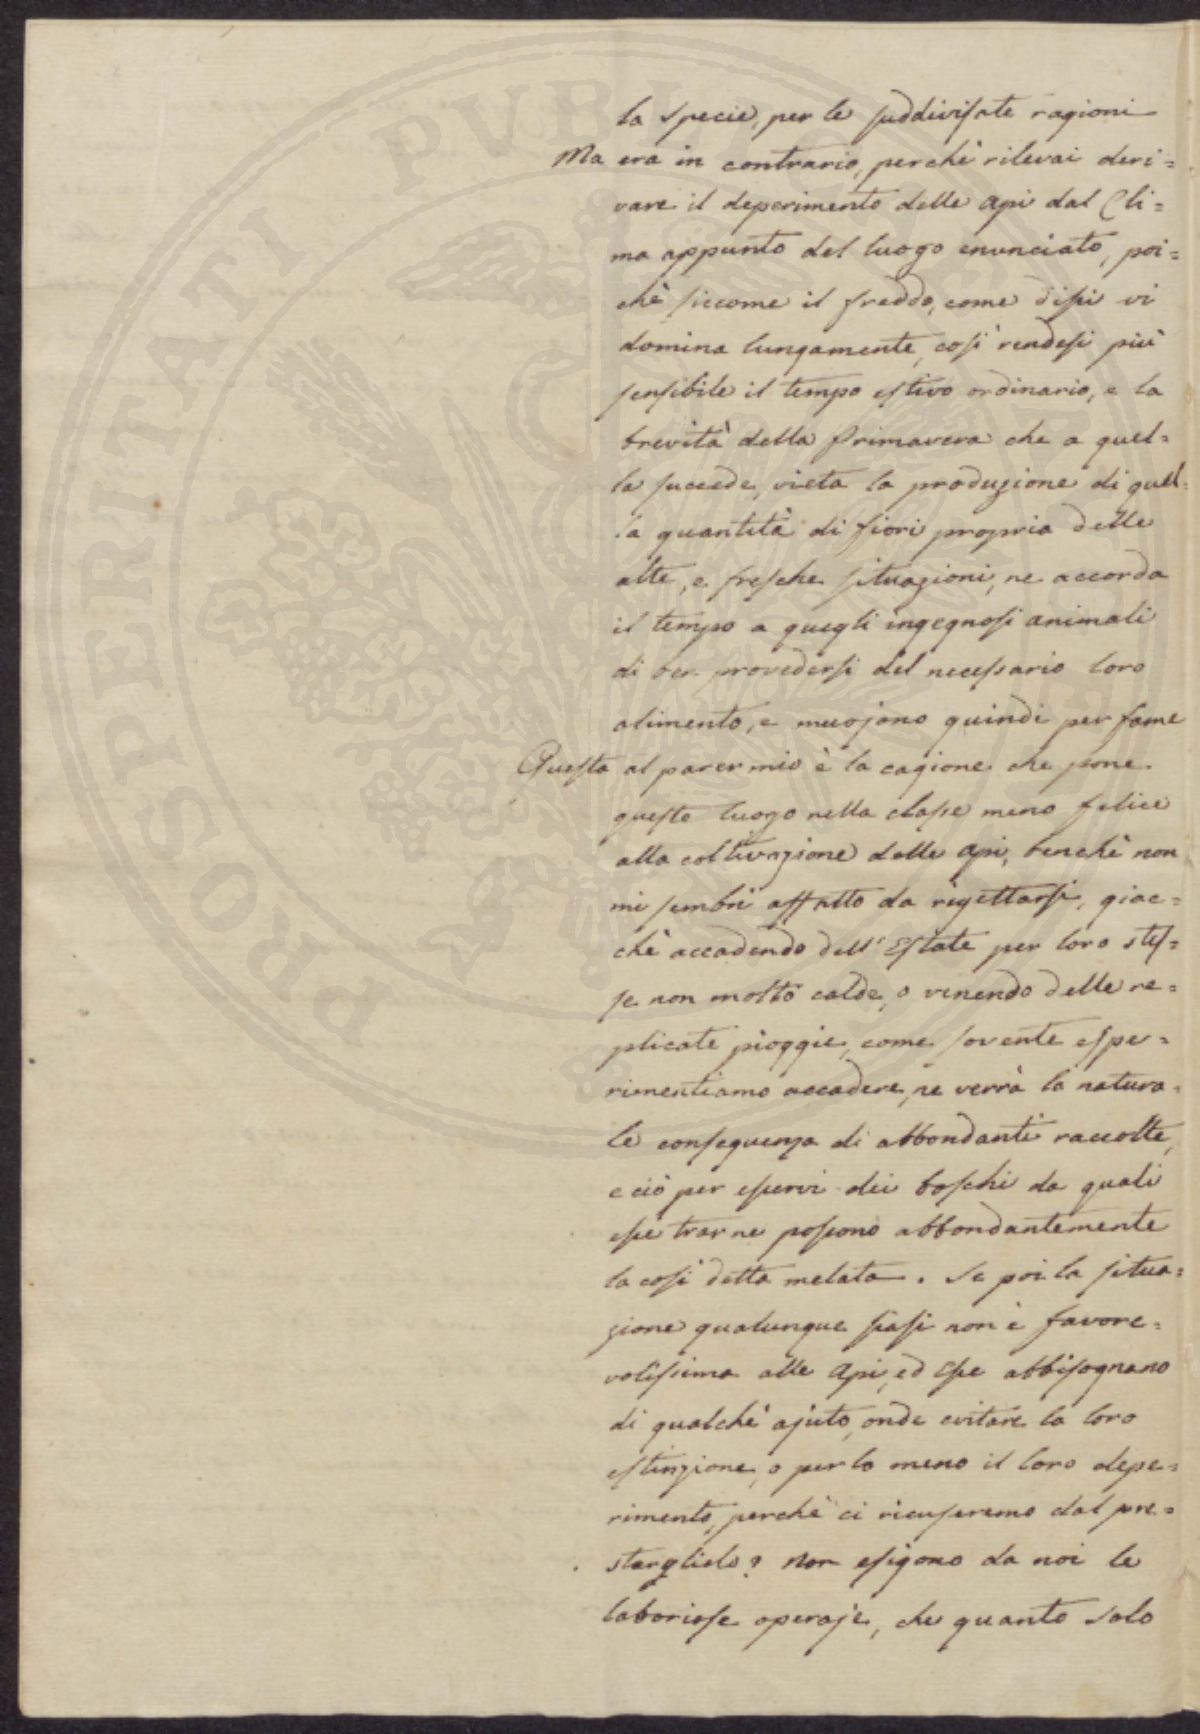 PROSPERITATI PVBLI
la specie, per le suddivisate ragioni
Ma era in contrario, perchè rilevai deri=
vare il deperimento delle Api dal Cli=
ma appunto del luogo enunciato, poi=
chè siccome il freddo, come dissi vi
domina lungamente, così rendesi più
sensibile il tempo estivo ordinario, e la
brevità della Primavera che a quel=
la succede, vieta la produzione di quel=
la quantità di fiori propria delle
alte, e fresche situazioni, ne accorda
il tempo a quegli ingegnosi animali
di ben provedersi del necessario loro
alimento, e muojono quindi per fame
Questa al parer mio è la cagione che pone
questo luogo nella classe meno felice
alla coltivazione delle Api, benchè non
mi sembri affatto da rigettarsi, giac=
chè accadendo dell'Estate per loro stes=
se non molto calde, o venendo delle re=
plicate pioggie, come sovente espe=
rimentiamo accadere, ne verrà la natura=
le conseguenza di abbondanti raccolte,
e ciò per esservi dei boschi da quali
esse trarne possono abbondantemente
la così detta melata. Se poi la situa=
zione qualunque siasi non è favore=
volissima alle Api, ed Esse abbisognano
di qualche ajuto, onde evitare la loro
estinzione, o per lo meno il loro depe=
rimento, perchè ci ricuseremo dal pre=
starglielo? Non esigono da noi le
laboriose operaje, che quanto solo